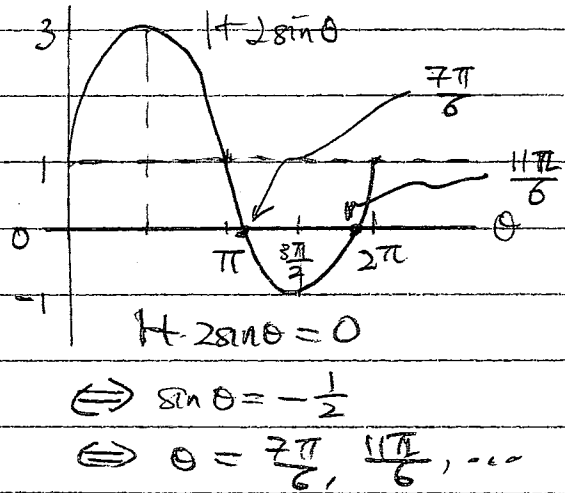 3
1+2sinθ
7π/6
1
11π/6
0
π
3π/2
2π
θ
-1
1+2sinθ = 0
⟺ sin θ = -1/2
⟺ θ = 7π/6, 11π/6, ...